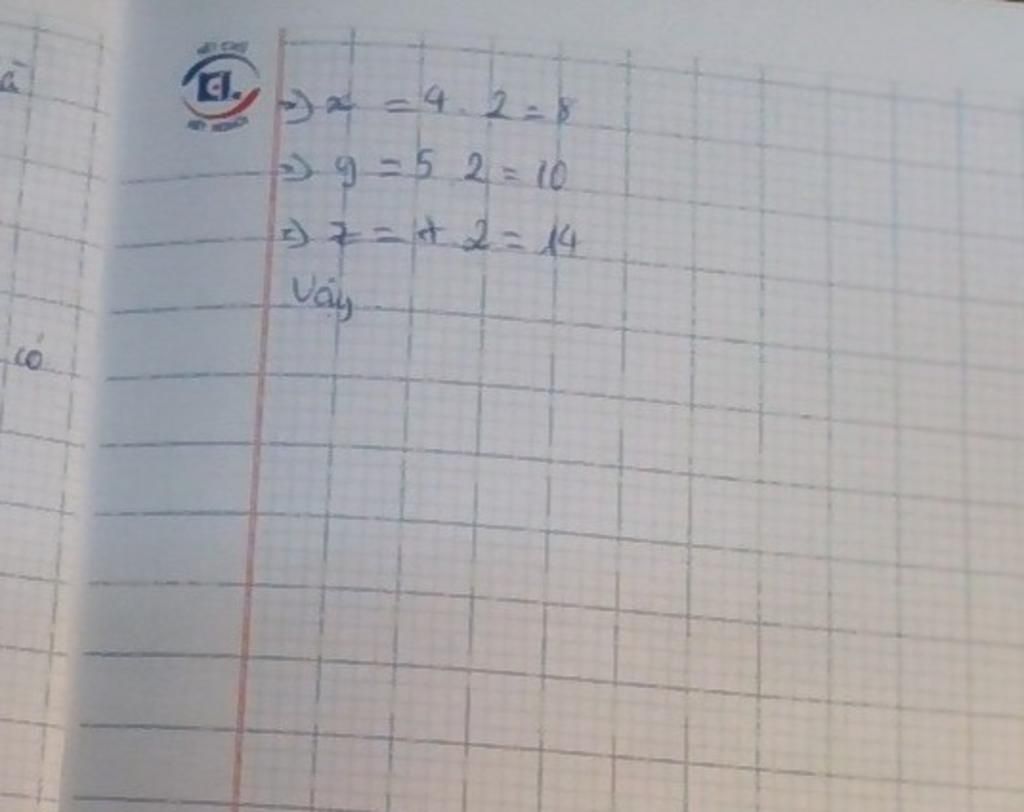 à
=> x = 4 . 2 = 8
=> y = 5 2 = 10
=> z = 7 2 = 14
Vậy
có